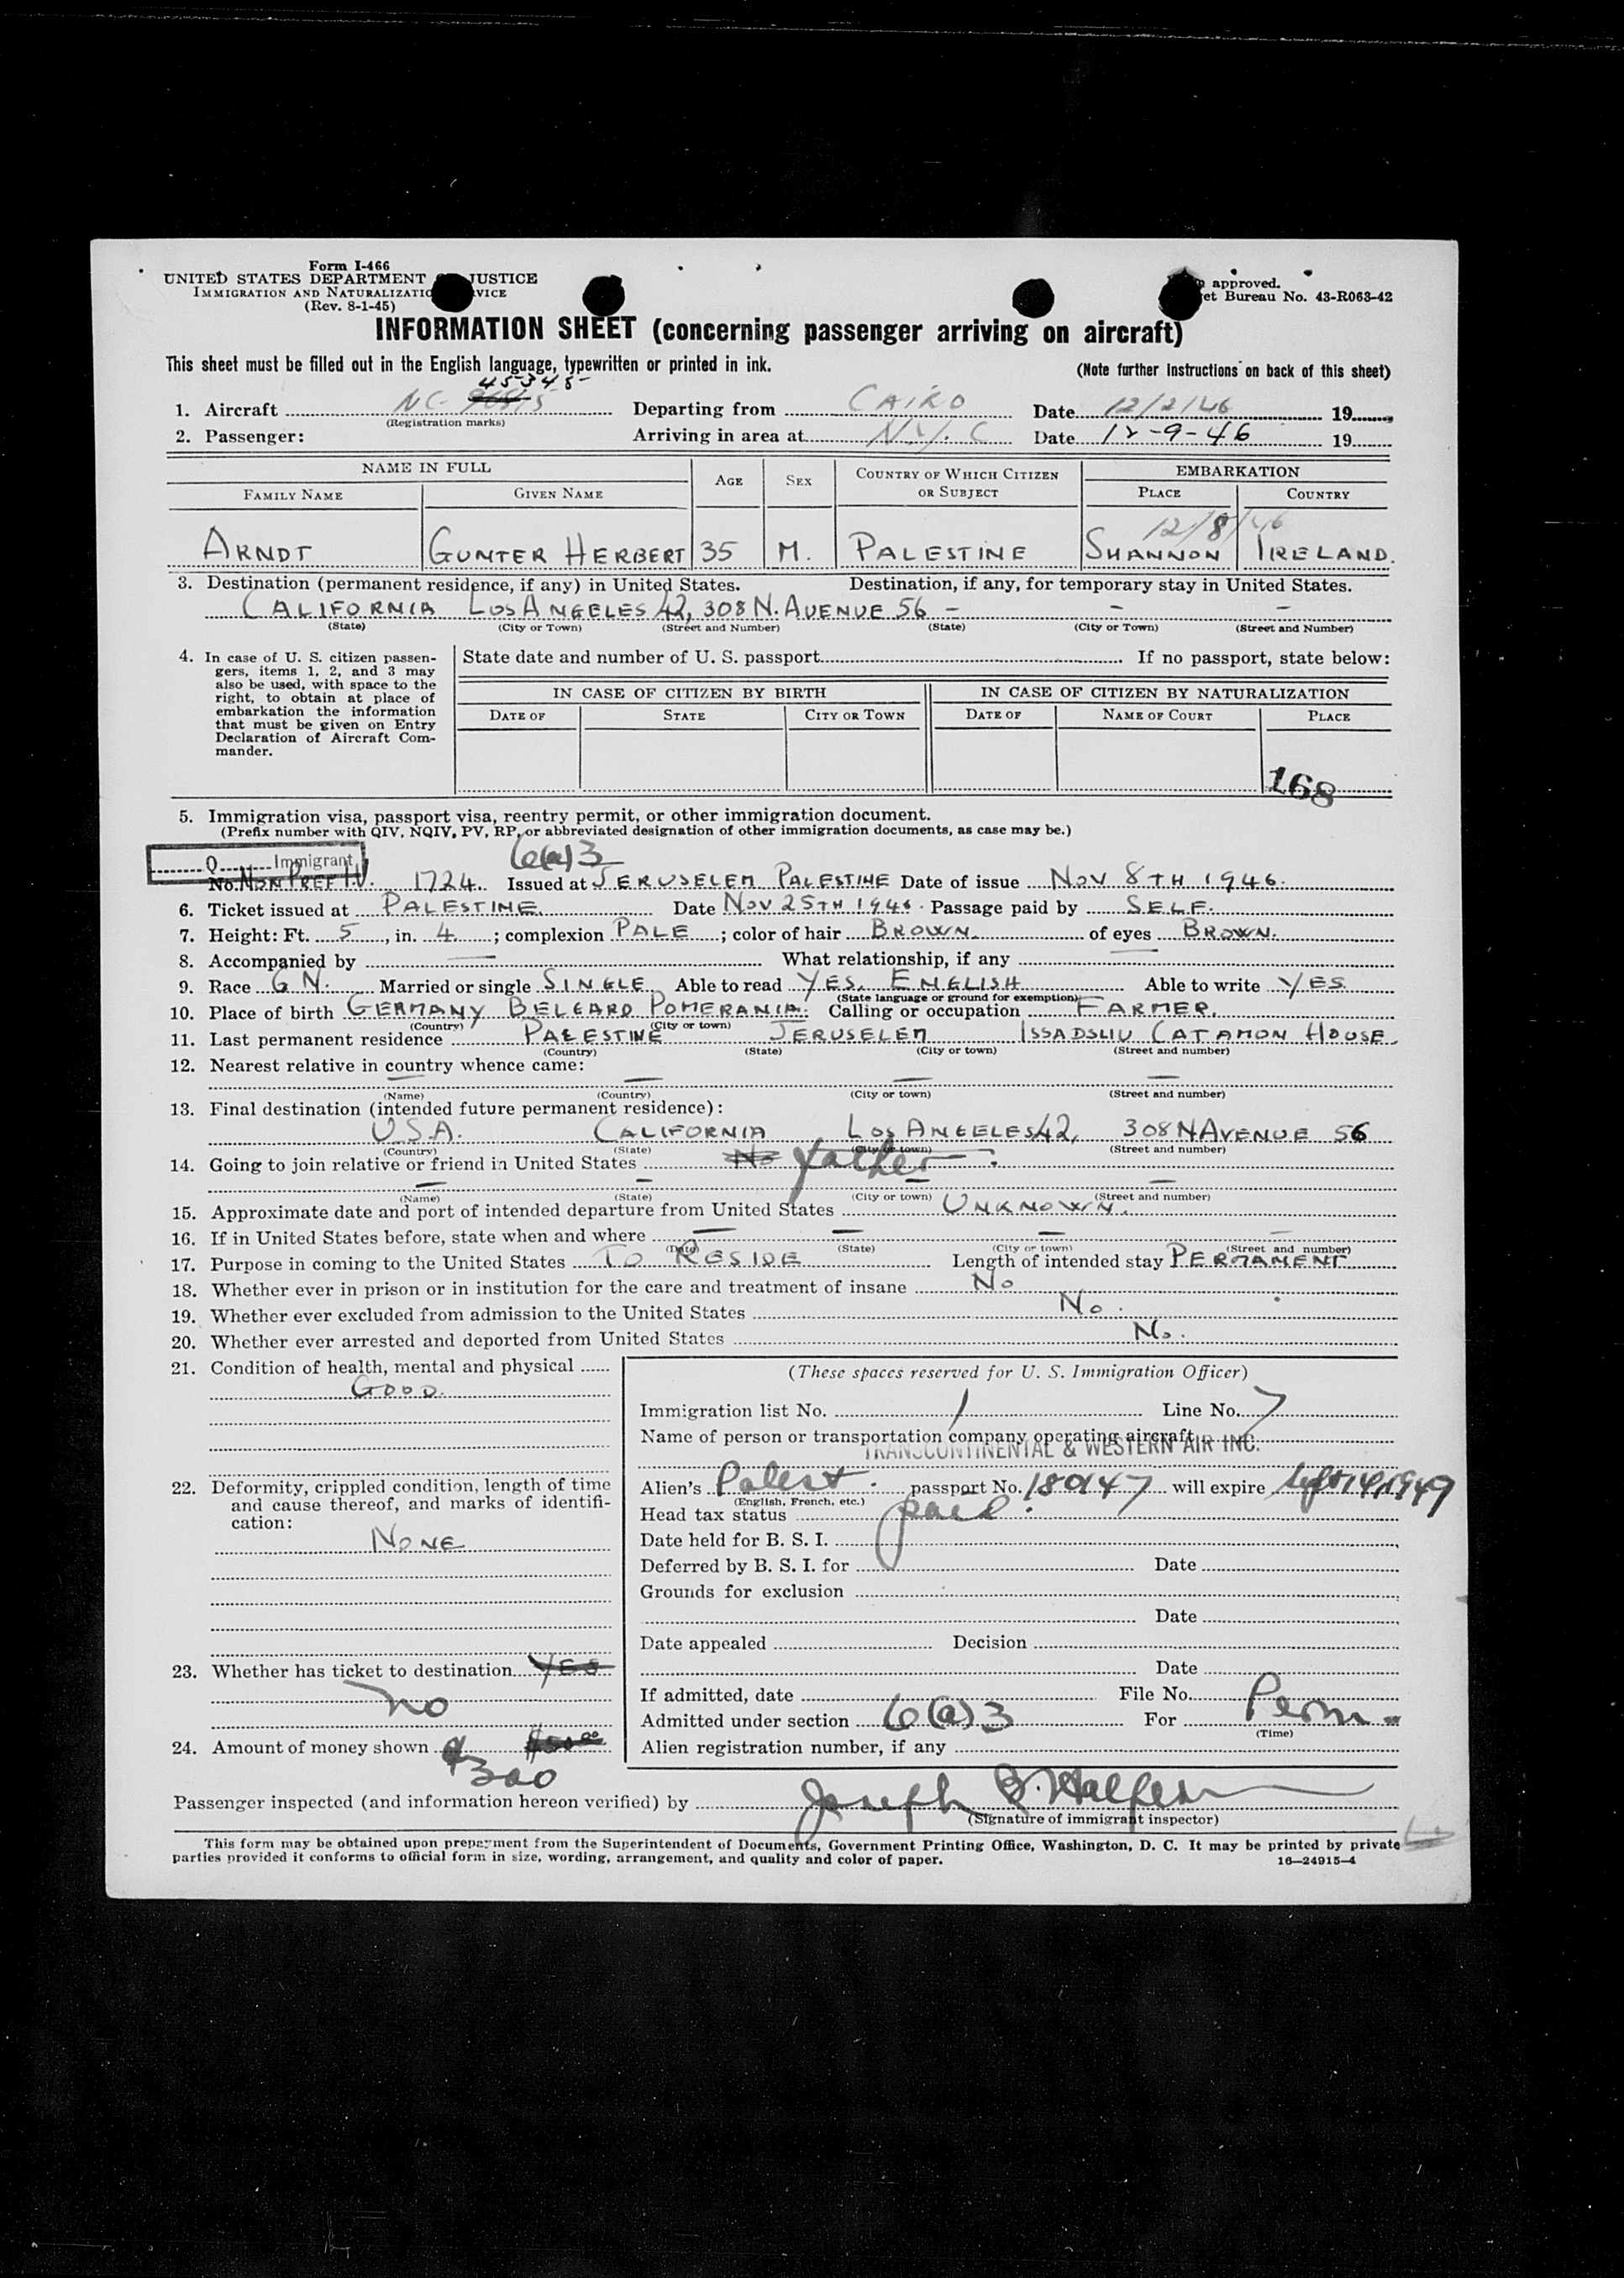 Form I-466
UNITED STATES DEPARTMENT JUSTICE
IMMIGRATION AND
(Rev. 8-1-45)
approved.
Bureau No. 43-R063-42
INFORMATION SHEET (concerning passenger arriving on aircraft)
This sheet must be filled out in the English language, typewritten or printed in ink.
(Note further instructions on back of this sheet)
45345
1. Aircraft NC- Departing from CAIRO Date 12/2/46 19
(Registration marks)
2. Passenger: Arriving in area at N.Y.C Date 12-9-46 19
NAME IN FULL AGE SEX COUNTRY OF WHICH CITIZEN OR SUBJECT EMBARKATION
FAMILY NAME GIVEN NAME PLACE COUNTRY
12/8/46
ARNDT GUNTER HERBERT 35 M. PALESTINE SHANNON IRELAND.
3. Destination (permanent residence, if any) in United States. Destination, if any, for temporary stay in United States.
CALIFORNIA LOS ANGELES 42, 308 N. AVENUE 56 - - -
(State) (City or Town) (Street and Number) (State) (City or Town) (Street and Number)
4. In case of U. S. citizen passen-
gers, items 1, 2, and 3 may
also be used, with space to the
right, to obtain at place of
embarkation the information
that must be given on Entry
Declaration of Aircraft Com-
mander.
State date and number of U. S. passport If no passport, state below:
IN CASE OF CITIZEN BY BIRTH IN CASE OF CITIZEN BY NATURALIZATION
DATE OF STATE CITY OR TOWN DATE OF NAME OF COURT PLACE
168
5. Immigration visa, passport visa, reentry permit, or other immigration document.
(Prefix number with QIV, NQIV, PV, RP, or abbreviated designation of other immigration documents, as case may be.)
Q Immigrant 6(a)3
No. NON PREF I.V. 1724 Issued at JERUSELEM PALESTINE Date of issue NOV 8TH 1946.
6. Ticket issued at PALESTINE. Date NOV 25TH 1946. Passage paid by SELF.
7. Height: Ft. 5, in. 4; complexion PALE; color of hair BROWN. of eyes BROWN.
8. Accompanied by — What relationship, if any
9. Race G N. Married or single SINGLE Able to read YES. ENGLISH Able to write YES
(State language or ground for exemption)
10. Place of birth GERMANY BELGARD POMERANIA. Calling or occupation FARMER.
(Country) (City or town)
11. Last permanent residence PALESTINE JERUSELEM ISSADSLIU CATAMON HOUSE.
(Country) (State) (City or town) (Street and number)
12. Nearest relative in country whence came:
— — — —
(Name) (Country) (City or town) (Street and number)
13. Final destination (intended future permanent residence):
U.S.A. CALIFORNIA LOS ANGELES 42, 308 N AVENUE 56
(Country) (State) (City or town) (Street and number)
14. Going to join relative or friend in United States No father.
— — — —
(Name) (State) (City or town) (Street and number)
15. Approximate date and port of intended departure from United States UNKNOWN.
16. If in United States before, state when and where — — — —
(Date) (State) (City or town) (Street and number)
17. Purpose in coming to the United States TO RESIDE Length of intended stay PERMANENT
18. Whether ever in prison or in institution for the care and treatment of insane No
19. Whether ever excluded from admission to the United States No.
20. Whether ever arrested and deported from United States No.
21. Condition of health, mental and physical
GOOD.
22. Deformity, crippled condition, length of time
and cause thereof, and marks of identifi-
cation:
NONE
23. Whether has ticket to destination YES
no
24. Amount of money shown
$300
(These spaces reserved for U. S. Immigration Officer)
Immigration list No. 1 Line No. 7
Name of person or transportation company operating aircraft
TRANSCONTINENTAL & WESTERN AIR INC.
Alien's Palest. passport No. 180147 will expire 1949
(English, French, etc.)
Head tax status paid.
Date held for B. S. I.
Deferred by B. S. I. for Date
Grounds for exclusion
Date
Date appealed Decision
Date
If admitted, date File No.
Admitted under section 6(a)3 For Perm.
(Time)
Alien registration number, if any
Passenger inspected (and information hereon verified) by Joseph B. Halpern
(Signature of immigrant inspector)
This form may be obtained upon prepayment from the Superintendent of Documents, Government Printing Office, Washington, D. C. It may be printed by private
parties provided it conforms to official form in size, wording, arrangement, and quality and color of paper. 16—24915-4